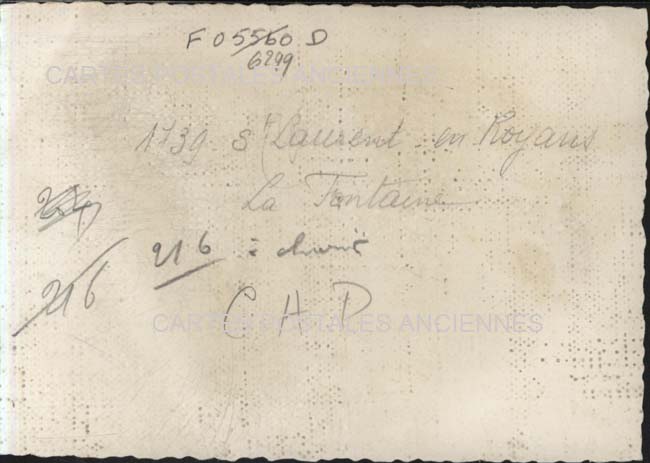 F 05560 D
6299
CARTES POSTALES ANCIENNES
1739 St Laurent en Royans
La Fontaine
216 :
216
C H D
CARTES POSTALES ANCIENNES